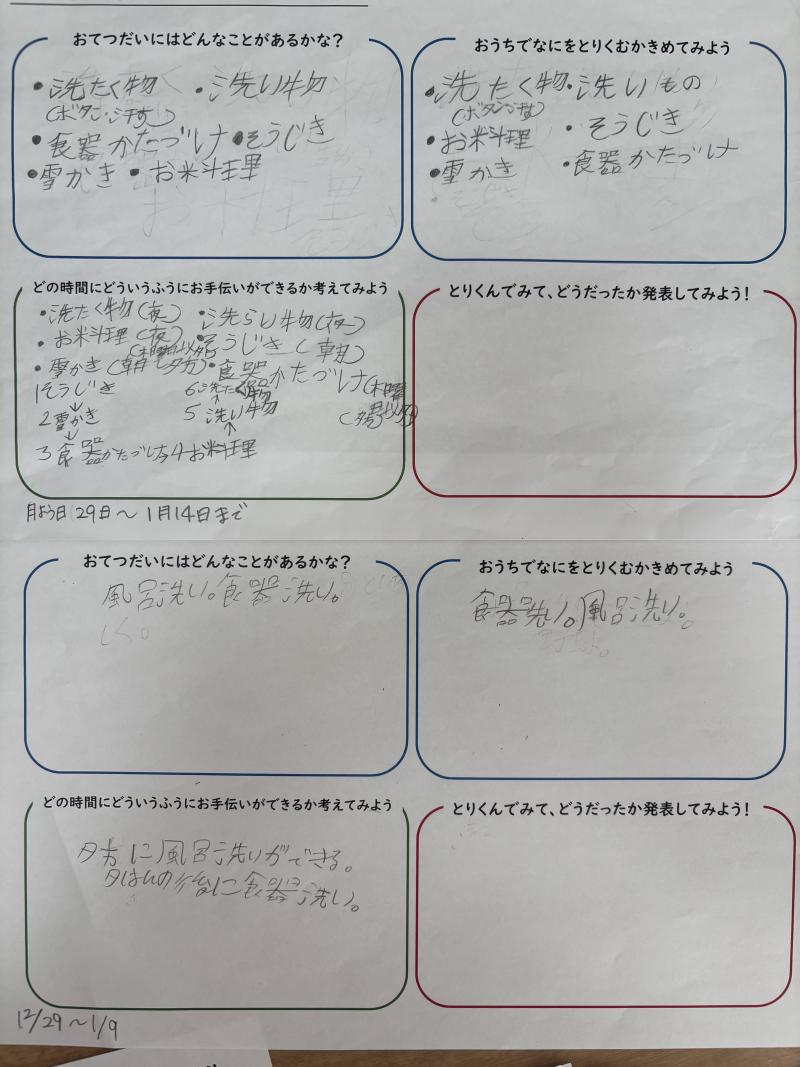 おてつだいにはどんなことがあるかな?
・洗たく物 ・洗い物
(ボタン・ 
・食器かたづけ ・そうじき
・雪かき ・お米料理
おうちでなにをとりくむかきめてみよう
・洗たく物 ・洗いもの
(ボタン
・お米料理 ・そうじき
・雪かき ・食器かたづけ
どの時間にどういうふうにお手伝いができるか考えてみよう
・洗たく物(夜) ・洗らい物(夜)
・お米料理(夜) ・そうじき(朝)
(木曜以外)
・雪かき(朝・夕方) ・食器かたづけ(木曜
以外)
1そうじき
↓
2雪かき
↓
3食器かたづけ→4お米料理
↑
5洗い物
↑
6洗たく物
とりくんでみて、どうだったか発表してみよう!
月よう日29日~1月14日まで
おてつだいにはどんなことがあるかな?
風呂洗い。食器洗い。
おうちでなにをとりくむかきめてみよう
食器洗い。風呂洗い。
どの時間にどういうふうにお手伝いができるか考えてみよう
夕方に風呂洗いができる。
夕はんの後に食器洗い。
とりくんでみて、どうだったか発表してみよう!
12/29~1/9